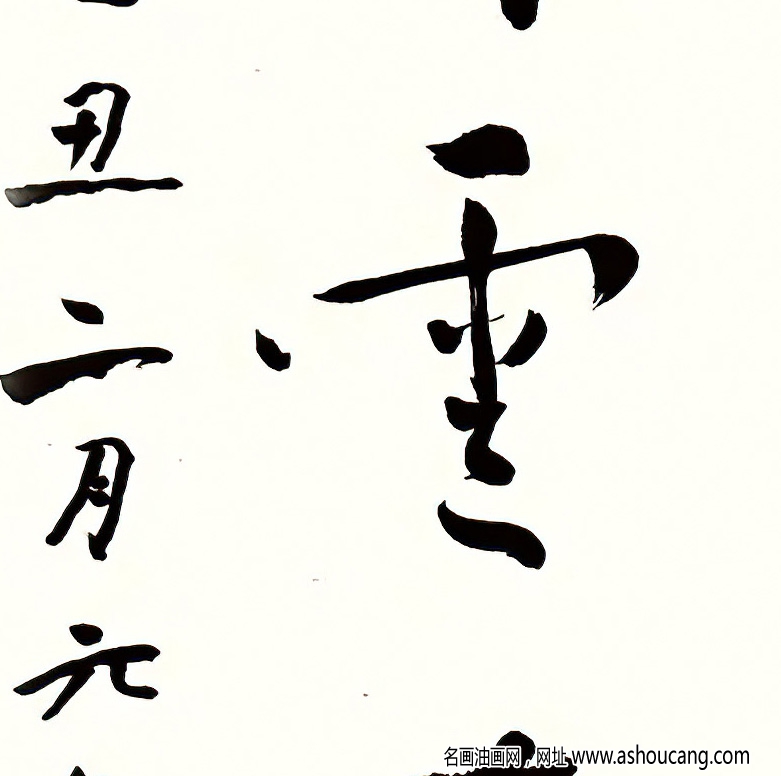 雲
丑二月六
名画油画网，网址 www.ashoucang.com